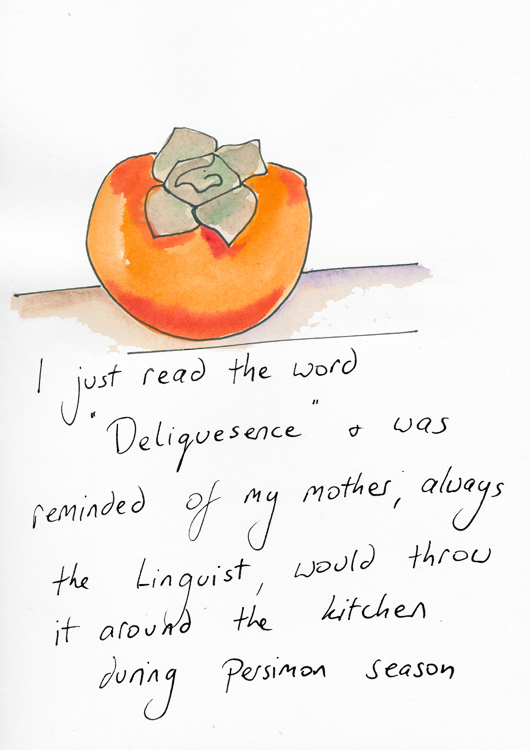 I just read the word
"Deliquesence" & was
reminded of my mother, always
the Linguist, would throw
it around the kitchen
during Persimon season